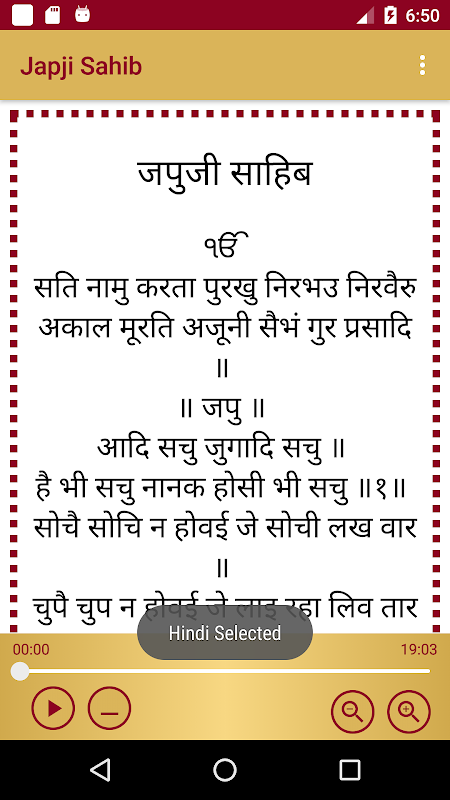 6:50
Japji Sahib
जपुजी साहिब
ੴ
सति नामु करता पुरखु निरभउ निरवैरु
अकाल मूरति अजूनी सैभं गुर प्रसादि
॥
॥ जपु ॥
आदि सचु जुगादि सचु ॥
है भी सचु नानक होसी भी सचु ॥१॥
सोचै सोचि न होवई जे सोची लख वार
॥
चुपै चुप न होवई जे लाइ रहा लिव तार
Hindi Selected
00:00 19:03